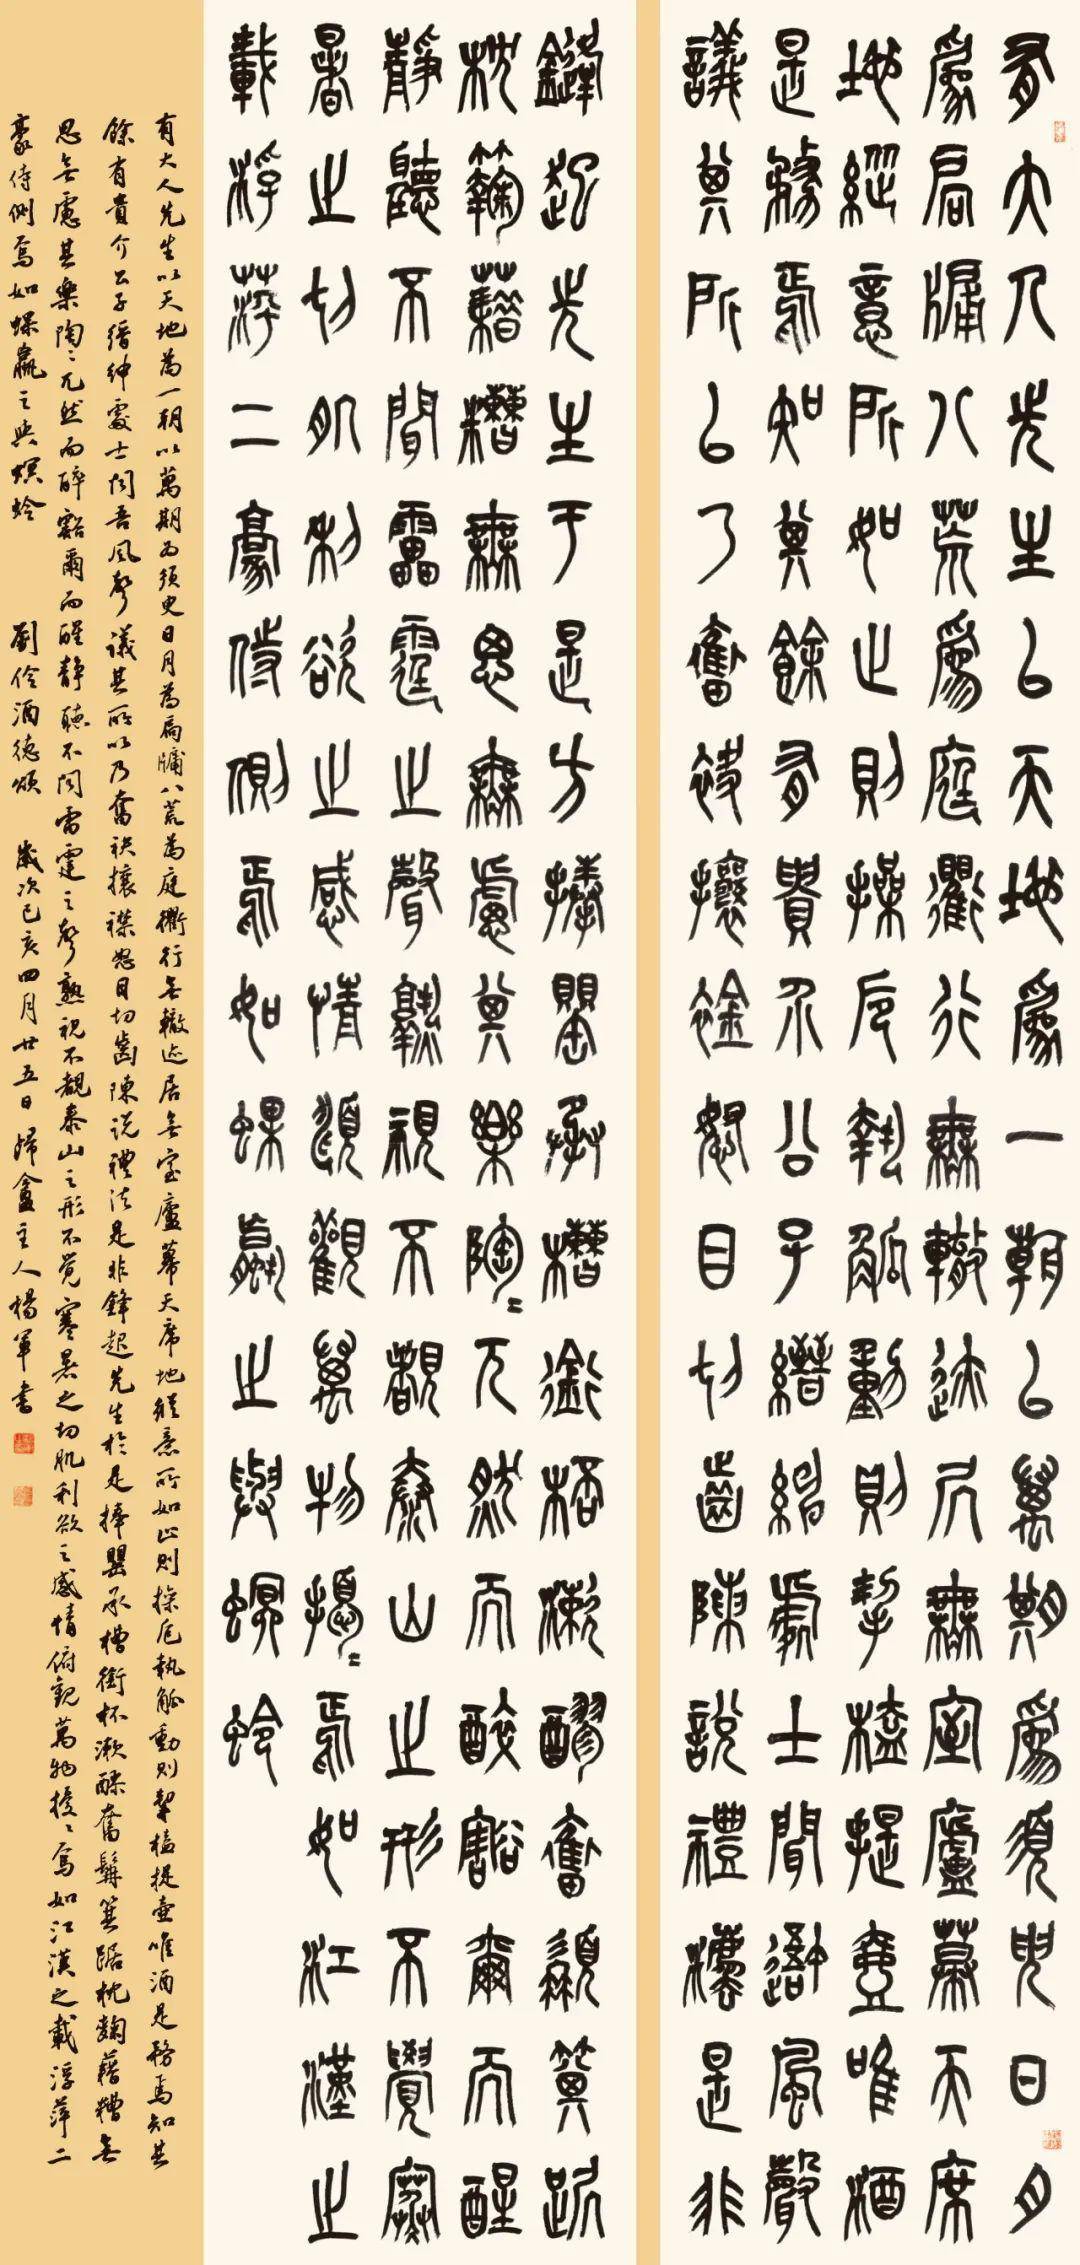 有大人先生以天地爲一朝以萬期爲須臾日月
爲扃牖八荒爲庭衢行無轍迹居無室廬幕天席
地縱意所如止則操卮執觚動則挈榼提壺唯酒
是務焉知其餘有貴介公子縉紳處士聞吾風聲
議其所以乃奮袂攘襟怒目切齒陳說禮法是非
鋒起先生于是方捧罌承槽銜杯漱醪奮髯箕踞
枕麴藉糟無思無慮其樂陶〻兀然而醉豁爾而醒
靜聽不聞雷霆之聲熟視不覩泰山之形不覺寒
暑之切肌利欲之感情俯觀萬物擾〻焉如江漢之
載浮萍二豪侍側焉如蜾蠃之與螟蛉
有大人先生以天地為一朝以萬期為須臾日月為扃牖八荒為庭衢行無轍迹居無室廬幕天席地縱意所如止則操卮執觚動則挈榼提壺唯酒是務焉知其
餘有貴介公子縉紳處士聞吾風聲議其所以乃奮袂攘襟怒目切齒陳說禮法是非鋒起先生於是捧罌承槽銜杯漱醪奮髯箕踞枕麴藉糟無
思無慮其樂陶〻兀然而醉豁爾而醒靜聽不聞雷霆之聲熟視不覩泰山之形不覺寒暑之切肌利欲之感情俯觀萬物擾〻焉如江漢之載浮萍二
豪侍側焉如蜾蠃之與螟蛉 劉伶酒德頌 歲次己亥四月廿五日歸盦主人楊軍書